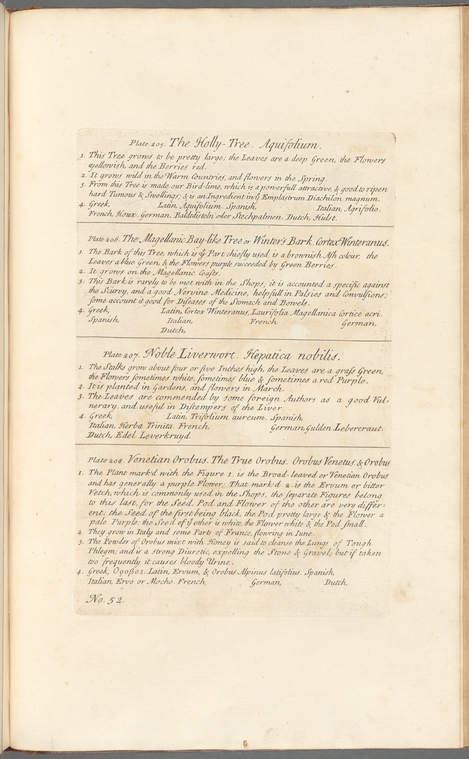 Plate 205. The Holly-Tree. Aquifolium.
1. This Tree grows to be pretty large; the Leaves are a deep Green, the Flowers
yellowish, and the Berries red.
2. It grows wild in the Warm Countries, and flowers in the Spring.
3. From this Tree is made our Bird-lime, which is a powerfull attractive, & good to ripen
hard Tumours & Swellings, & is an Ingredient in yͤ Emplastrum Diachilon magnum.
4. Greek, Latin, Aquifolium. Spanish, Italian, Agrifolio.
French, Houx. German, Balddisteln oder Stechpalmen. Dutch, Hulst.
Plate 206. The Magellanic Bay-like Tree or Winter's Bark. Cortex Winteranus.
1. The Bark of this Tree, which is yͤ Part chiefly used, is a brownish Ash colour, the
Leaves a blue Green, & the Flowers purple succeeded by Green Berries.
2. It grows on the Magellanic Coasts.
3. This Bark is rarely to be met with in the Shops, it is accounted a specific against
the Scurvy, and a good Nervine Medicine, helpfull in Palsies and Convulsions;
some account it good for Diseases of the Stomach and Bowels.
4. Greek, Latin, Cortex Winteranus, Laurifolia Magellanica cortice acri.
Spanish, Italian, French German,
Dutch,
Plate 207. Noble Liverwort. Hepatica nobilis.
1. The Stalks grow about four or five Inches high, the Leaves are a grass Green,
the Flowers sometimes white, sometimes blue & sometimes a red Purple.
2. It is planted in Gardens, and flowers in March.
3. The Leaves are commended by some foreign Authors as a good Vul-
nerary, and useful in Distempers of the Liver.
4. Greek, Latin, Trifolium aureum. Spanish,
Italian, Herba Trinita. French, German, Gulden Lebercraut.
Dutch, Edel Leverkruyd.
Plate 208. Venetian Orobus. The True Orobus. Orobus Venetus & Orobus
1. The Plant mark'd with the Figure 1. is the Broad-leaved or Venetian Orobus
and has generally a purple Flower. That mark'd 2. is the Ervum or bitter
Vetch, which is commonly used in the Shops, the separate Figures belong
to this last, for the Seed, Pod and Flower of the other are very differ-
ent; the Seed of the first being black, the Pod pretty large & the Flower a
pale Purple; the Seed of yͤ other is white, the Flower white & the Pod small.
2. They grow in Italy and some Parts of France, flowring in June.
3. The Powder of Orobus mixt with Honey is said to cleanse the Lungs of Tough
Phlegm, and is a strong Diuretic, expelling the Stone & Gravel; but if taken
too frequently it causes bloody Urine.
4. Greek, Ὄροβος. Latin, Ervum, & Orobus Alpinus latifolius. Spanish,
Italian, Ervo or Mocho. French, German, Dutch,
No. 52.